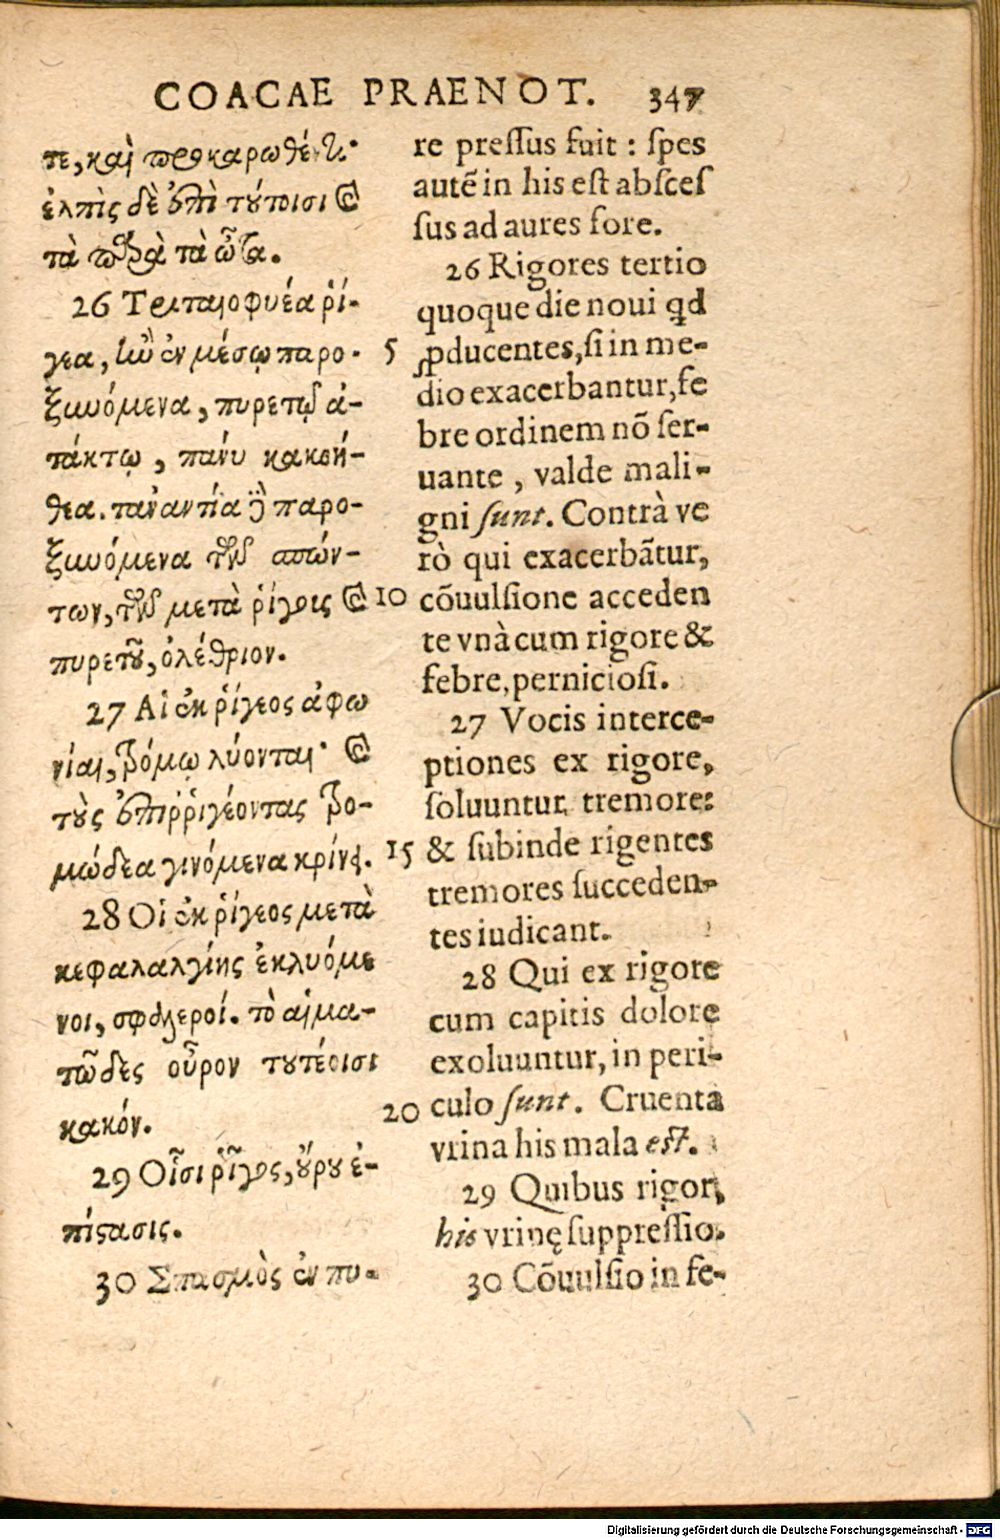 COACAE PRAENOT. 347
τε, καὶ προκαρωθέντι·
ἐλπὶς δὲ ἐπὶ τούτοισι καὶ
τὰ παρὰ τὰ ὦτα.
26 Τριταιοφυέα ῥί-
γεα, ἢν ἐν μέσῳ παρο-
ξυνόμενα, πυρετῷ ἀ-
τάκτῳ, πάνυ κακοή-
θεα. τἀναντία δὲ παρο-
ξυνόμενα τῶν σπών-
των, τῶν μετὰ ῥίγοις καὶ
πυρετοῦ, ὀλέθριον.
27 Αἱ ἐκ ῥίγεος ἀφω
νίαι, τρόμῳ λύονται· καὶ
τοὺς ἐπιῤῥιγέοντας τρο-
μώδεα γινόμενα κρίνει.
28 Οἱ ἐκ ῥίγεος μετὰ
κεφαλαλγίης ἐκλυόμε
νοι, σφαλεροί. τὸ αἱμα-
τῶδες οὖρον τουτέοισι
κακόν.
29 Οἷσι ῥῖγος, οὔρου ἐ-
πίστασις.
30 Σπασμὸς ἐν πυ-
re pressus fuit : spes
autē in his est absces
sus ad aures fore.
26 Rigores tertio
quoque die noui qd
5 ꝓducentes, si in me-
dio exacerbantur, fe
bre ordinem nō ser-
uante, valde mali-
gni sunt. Contrà ve
rò qui exacerbātur,
10 cōuulsione acceden
te vnà cum rigore &
febre, perniciosi.
27 Vocis interce-
ptiones ex rigore,
soluuntur tremore:
15 & subinde rigentes
tremores succeden-
tes iudicant.
28 Qui ex rigore
cum capitis dolore
exoluuntur, in peri-
20 culo sunt. Cruenta
vrina his mala est.
29 Quibus rigor,
his vrinę suppressio.
30 Cōuulsio in fe-
Digitalisierung gefördert durch die Deutsche Forschungsgemeinschaft - DFG